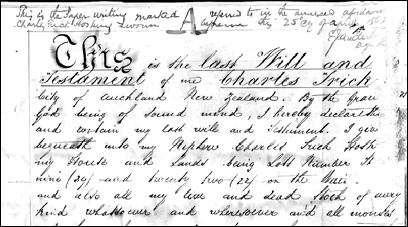 This is the Paper writing marked A referred to in the annexed affidavit
Charles Frick Hosking sworn before me this 25 day of April
This is the last Will and
Testament of me Charles Frick
City of Auckland New Zealand. By the grace
God being of sound mind, I hereby declare this
and contain my last will and testament. I give
bequeath unto my Nephew Charles Frick Hosk
my House and Lands being Lots Number
nine (29) and twenty two (22) on the
and also all my live and dead Stock of every
kind whatsoever and wheresoever and all monies